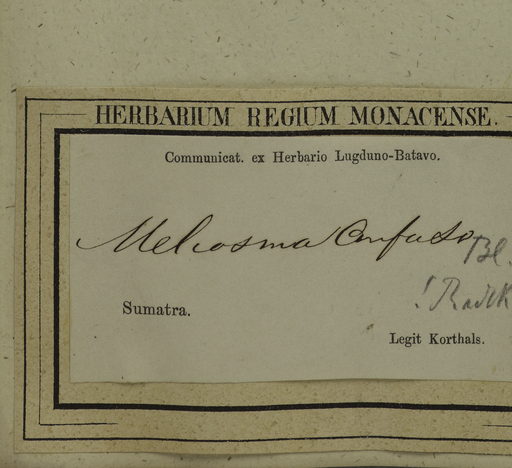 HERBARIUM REGIUM MONACENSE.
Communicat. ex Herbario Lugduno-Batavo.
Meliosma Confusa Bl.
! Radlk
Sumatra.
Legit Korthals.